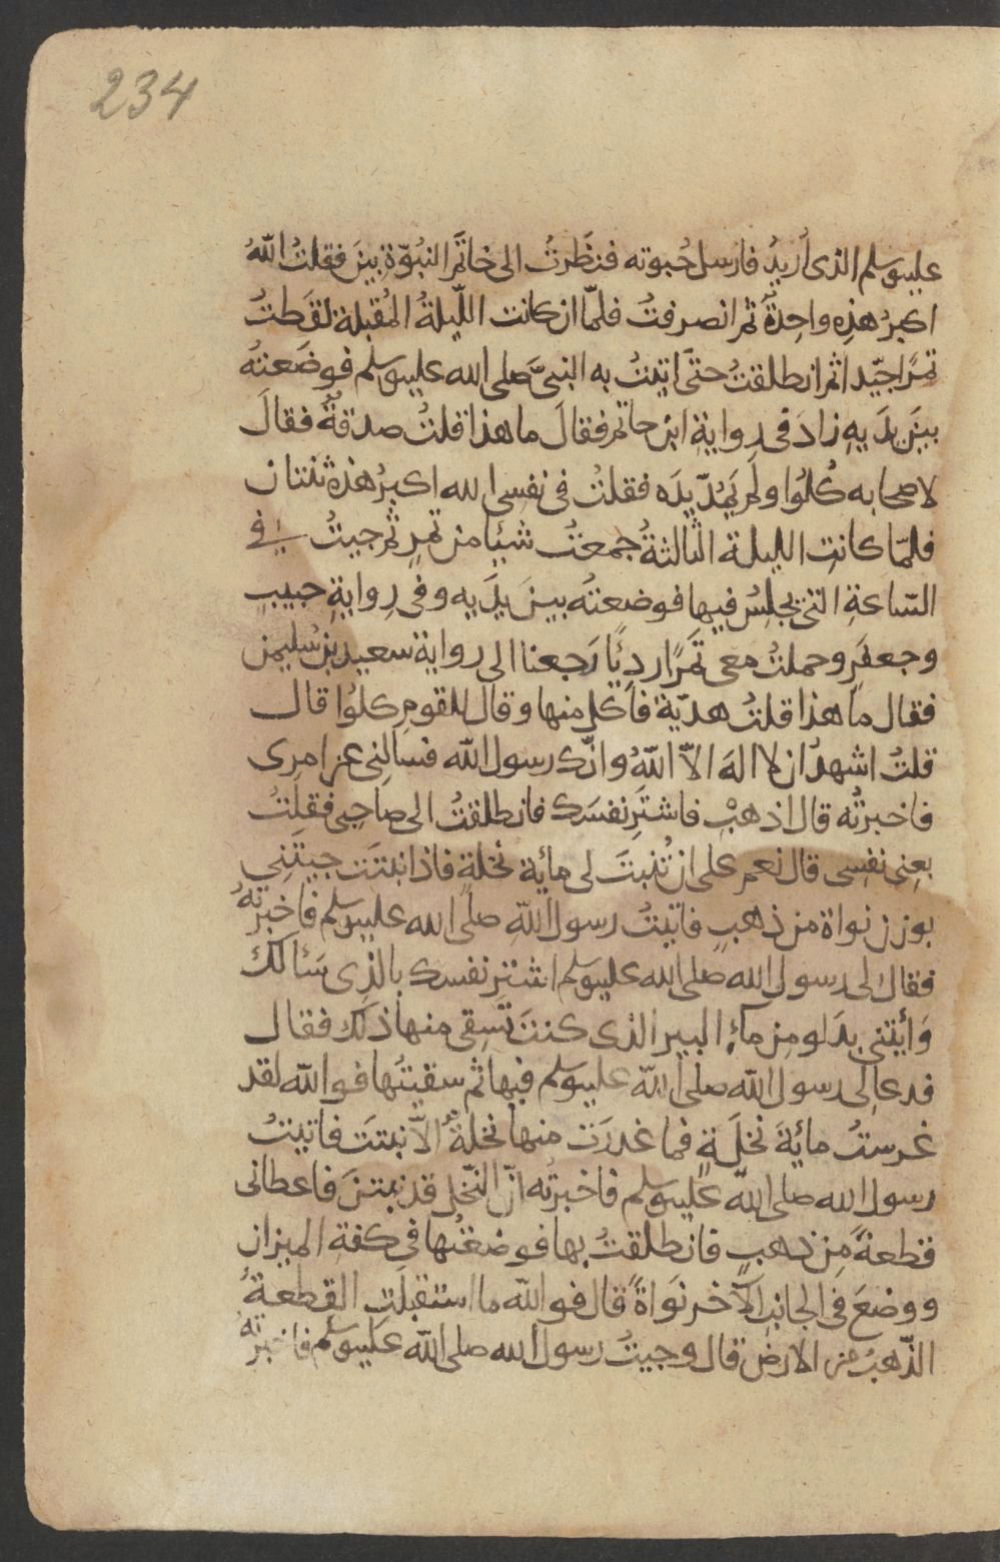 234
عليه وسلم الذى اُريدُ فارسل حُبوته فنَظَرتُ الى خاتَمِ النبُوّة بينَ فقلتُ اللهُ
اكبرُ هذِه واحِدةٌ ثم انصرفتُ فلمّا ان كانت اللّيلةُ المُقبلة لقَطتُ
تمرًا جيّدا ثم انطلقتُ حتَى اتيتُ به النبىَّ صلى الله عليه وسلم فوضَعتُه
بيَن يدَيهِ زادَ فى رِوايةِ ابن حاتم فقالَ ما هذا قلتُ صدقةٌ فقالَ
لاصحابه كُلوُا ولَم يَمُدّ يدَه فقلتُ فى نفسى الله اكبرُ هذه ثنتان
فلمّا كانتِ الليلة الثالثةُ جمعتُ شيئا من تمرٍ ثم جيتُ فى
السّاعةِ التى يجلِسُ فيها فوضعتُه بينَ يدَيه وفى رِوايةِ حبيبٍ
وجعفَرٍ وحملتُ معى تَمرًا ردِئًا رَجعنا الى رواية سعيد بن سُليمن
فقال ما هذا قلتُ هديّة فاكل منها وقال للقومِ كلوُا قال
قلتُ اشهدُ ان لا اله الاّ اللهُ وانّك رسول الله فسالَنِى عن امرِى
فاخبرتُه قال اذهبْ فاشترِ نفسَك فانطلقتُ الى صاحبى فقلتُ
بعِنى نفسِى قال نعم على ان تُنبتَ لى مائة نخلة فاذا نبتَت جيتَنِى
بوزن نواة من ذهبٍ فاتيتُ رسول اللهِ صلى الله عليه وسلم فاخبرتُهُ
فقال لى رسول الله صلى الله عليه وسلم اشترِ نفسك بالذِى سَئالَكَ
وَأيتنى بدَلو مِن مآءِ البير الذى كنتَ تسقى منها ذلك فقال
فدعا لى رسول الله صلى الله عليه وسلم فيها ثم سقيتُها فوالله لقد
غرستُ مائةَ نخلَةٍ فما غدرَت منها نخلةٌ الاّ نبتَت فاتيتُ
رسول الله صلى الله عليه وسلم فاخبرتُه انّ النّخل قد نبتنَ فاعطانى
قطعةً مِن ذهبٍ فانطلقتُ بها فوضعتُها فى كفةِ الميزان
ووضعَ فى الجانبِ الآخر نوَاةً قال فوالله ما استقبلَتِ القِطعةُ
الذّهبُ من الارضِ قال وجيتُ رسول الله صلى الله عليه وسلم فاخبرتُهُ